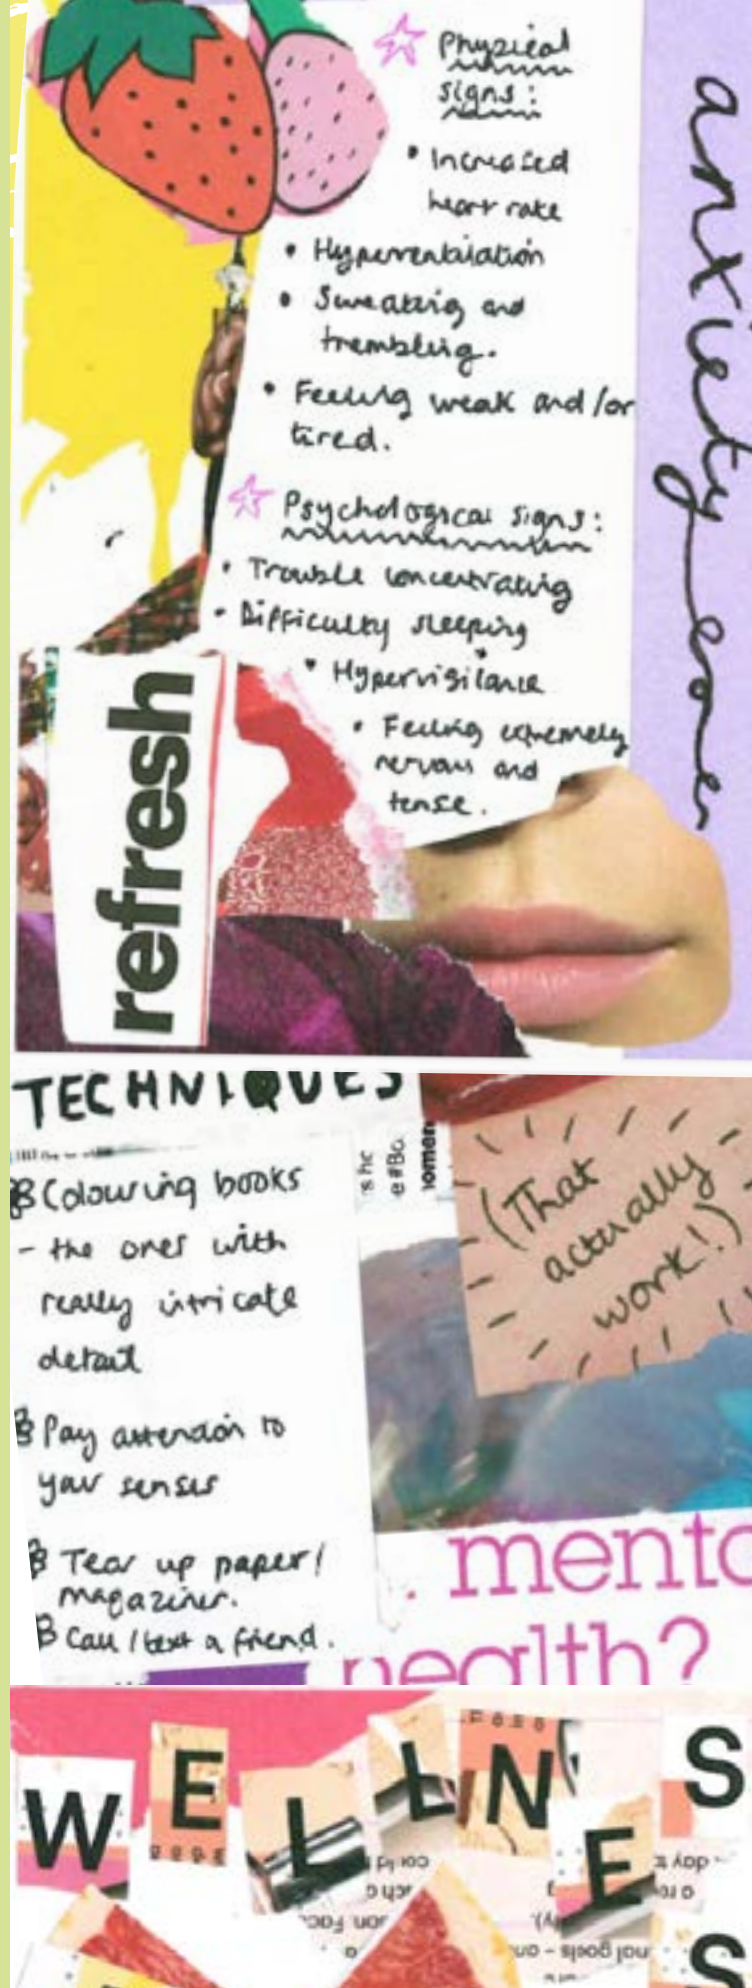 Physical
signs:
• Increased
heart rate
• Hyperventilation
• Sweating and
trembling.
• Feeling weak and/or
tired.
Psychological signs:
• Trouble concentrating
• Difficulty sleeping
• Hypervigilance
• Feeling extremely
nervous and
tense.
anxiety
refresh
TECHNIQUES
(That
actually
work!)
Colouring books
- the ones with
really intricate
detail
Pay attention to
your senses
Tear up paper/
magazines.
Call/text a friend.
health?
WELLNESS